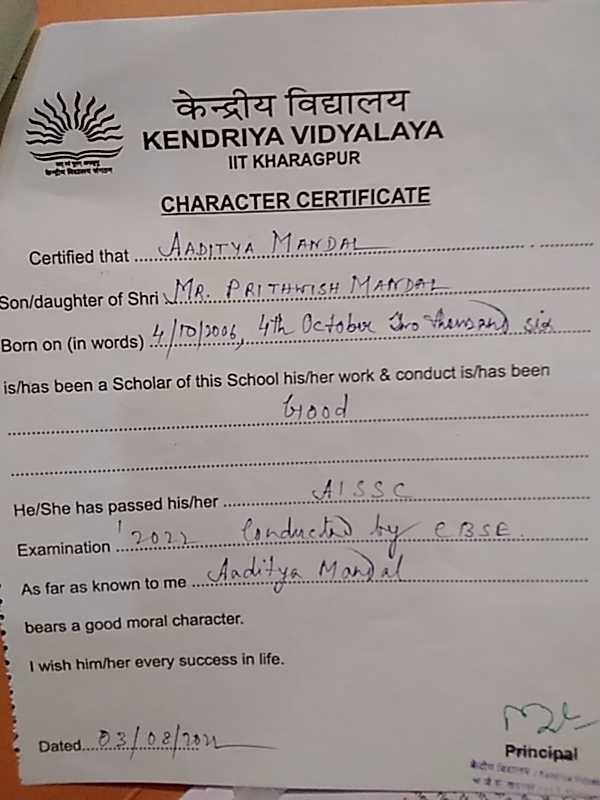 केन्द्रीय विद्यालय
KENDRIYA VIDYALAYA
IIT KHARAGPUR
केन्द्रीय विद्यालय संगठन
CHARACTER CERTIFICATE
Certified that AADITYA MANDAL
Son/daughter of Shri MR. PRITHWISH MANDAL
Born on (in words) 4/10/2006, 4th October Two thousand six
is/has been a Scholar of this School his/her work & conduct is/has been
Good
He/She has passed his/her AISSC
Examination '2022 Conducted by CBSE.
As far as known to me Aaditya Mandal
bears a good moral character.
I wish him/her every success in life.
Dated 03/08/2022
Principal
केन्द्रीय विद्यालय / Kendriya